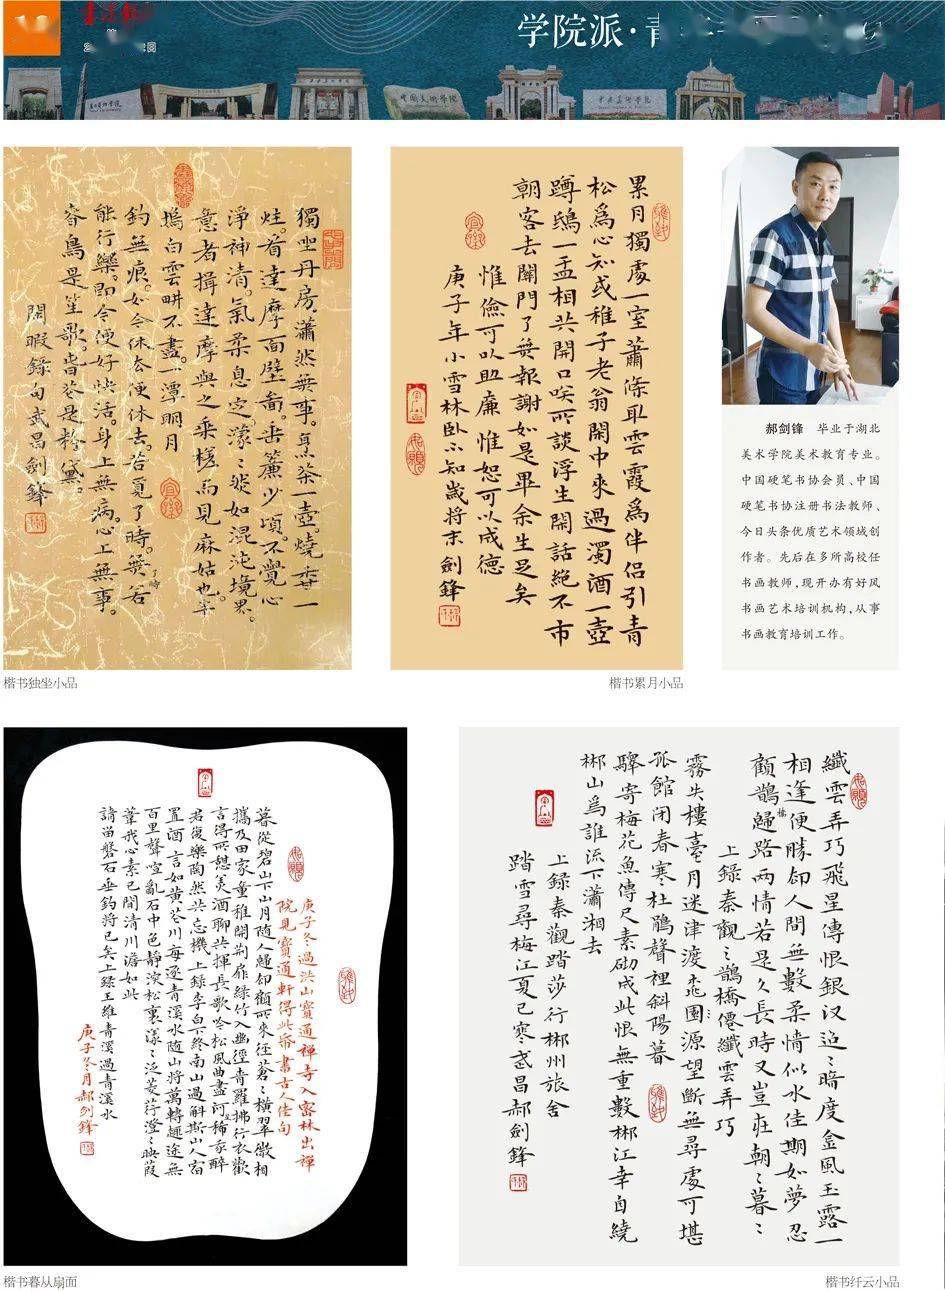 学院派·青
獨坐丹房。瀟然無事。烹茶一壺。燒香一
炷。看達摩面壁圖。垂簾少頃。不覺心
淨神清。氣柔息定。濛濛然如混沌境界。
意者揖達摩與之乘槎而見麻姑也。半
塢白雲畊不盡。一潭明月
釣無痕。如今休去便休去。若覓了時。無若
了時
能行樂。即今便好快活。身上無病。心上無事。
春鳥是笙歌。
閑暇錄句武昌劍鋒
楷书独坐小品
累月獨處一室蕭條取雲霞為伴侶引青
松為心知或稚子老翁閑中來過濁酒一壺
蹲鴟一盂相共開口咲所談浮生閑話絕不市
朝客去關門了無報謝如是畢余生足矣
惟儉可以助廉 惟恕可以成德
庚子年小雪林臥不知歲將末劍鋒
楷书累月小品
郝剑锋 毕业于湖北
美术学院美术教育专业。
中国硬笔书协会员、中国
硬笔书协注册书法教师、
今日头条优质艺术领域创
作者。先后在多所高校任
书画教师，现开办有好风
书画艺术培训机构，从事
书画教育培训工作。
庚子冬過洪山寶通禪寺入密林出禪
院見寶通軒得此舜書古人佳句
暮從碧山下山月隨人歸卻顧所來徑蒼蒼橫翠微相
攜及田家童稚開荆扉綠竹入幽徑青羅拂行衣歡
言得所憩美酒聊共揮長歌吟松風曲盡河星稀我醉
君復樂陶然共忘機上錄李白下終南山過斛斯山人宿
置酒 言如黃花川每逐青溪水隨山將萬轉趣途無
百里聲喧亂石中色靜深松裏漾漾泛菱荇澄澄映葭
葦我心素已閑清川澹如此
請留磐石垂釣將已矣上錄王維青溪過青溪水
庚子冬月郝劍鋒
楷书暮从扇面
纖雲弄巧飛星傳恨銀汉迢迢暗度金風玉露一
相逢便勝卻人間無數柔情似水佳期如夢忍
顧鵲橋歸路两情若是久長時又豈在朝朝暮暮
上錄秦觀鵲橋僊纖雲弄巧
霧失樓臺月迷津渡桃園源望斷無尋處可堪
孤館闭春寒杜鵑聲裡斜陽暮
驛寄梅花魚傳尺素砌成此恨無重數郴江幸自繞
郴山為誰流下瀟湘去
上錄秦觀踏莎行郴州旅舍
踏雪尋梅江夏已寒武昌郝劍鋒
楷书纤云小品